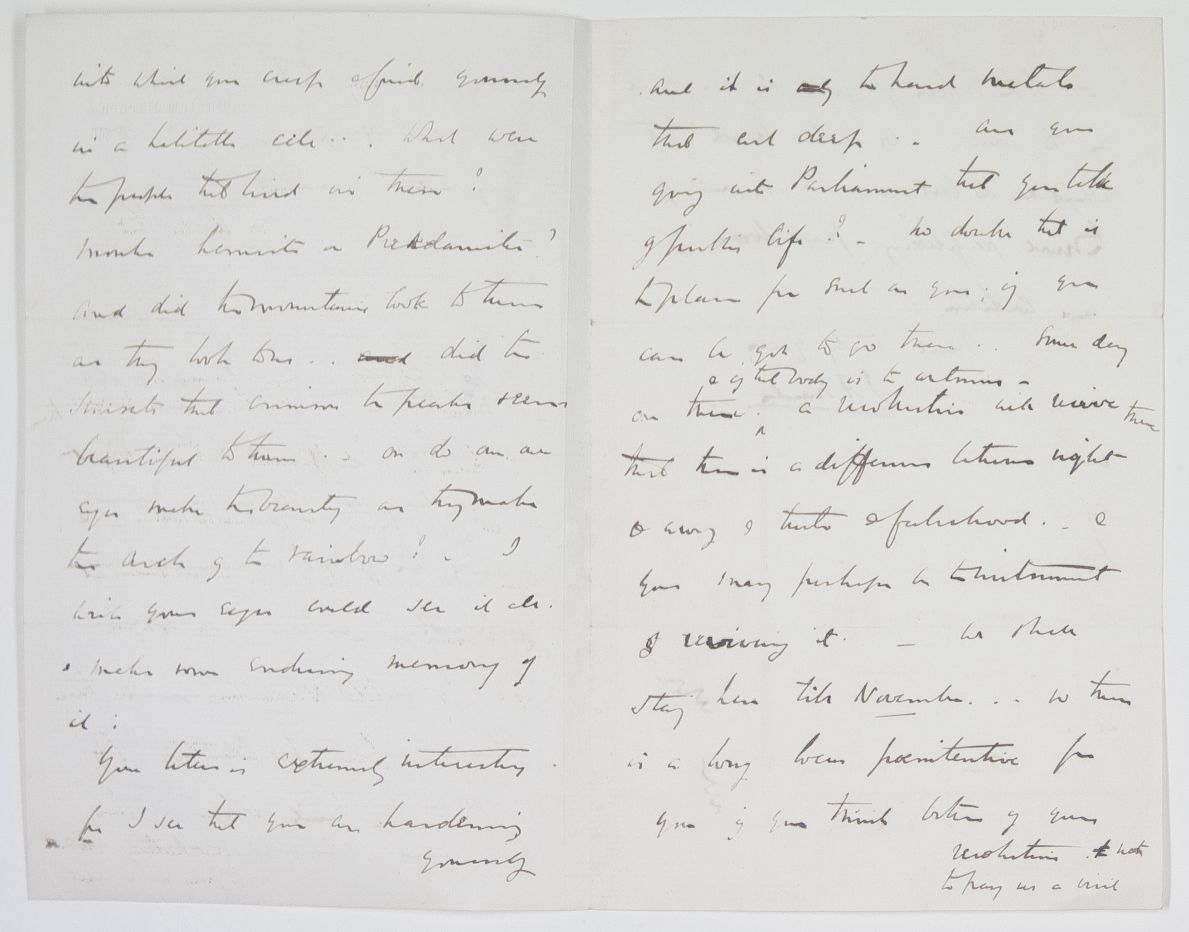 into which you creep & find yourself
in a habitable cell... What were
the people that lived in them?
Monks hermits or Preadamites?
And did the mountains look to them
as they look to us.. and did the
sunsets that crimson the peaks seem
beautiful to them.. or do our own
eyes make the beauty as they make
the arch of the rainbow? - I
wish your eyes could see it all.
& make some enduring memory of
it:
Your letter is extremely interesting.
for I see that you are hardening
yourself
and it is only the hard metals
that cut deep.. are you
going into Parliament that you talk
of public life? - no doubt that is
the place for such as you; if you
can be got to go there.. Some day
& if that body is to
or there. a revolution will revive there
that there is a difference between right
& wrong & truth & falsehood.. &
you may perhaps be the instrument
of reviving it. - We shall
stay here till November... so there
is a long locus poenitentiae for
you if you think better of your
resolution not
to pay us a visit